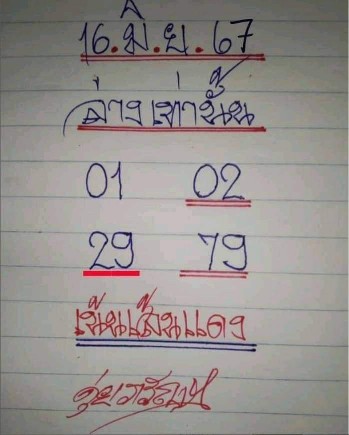 16.มิ.ย.67
ล่างเท่านั้น
01 02
29 79
เน้นเส้นแดง